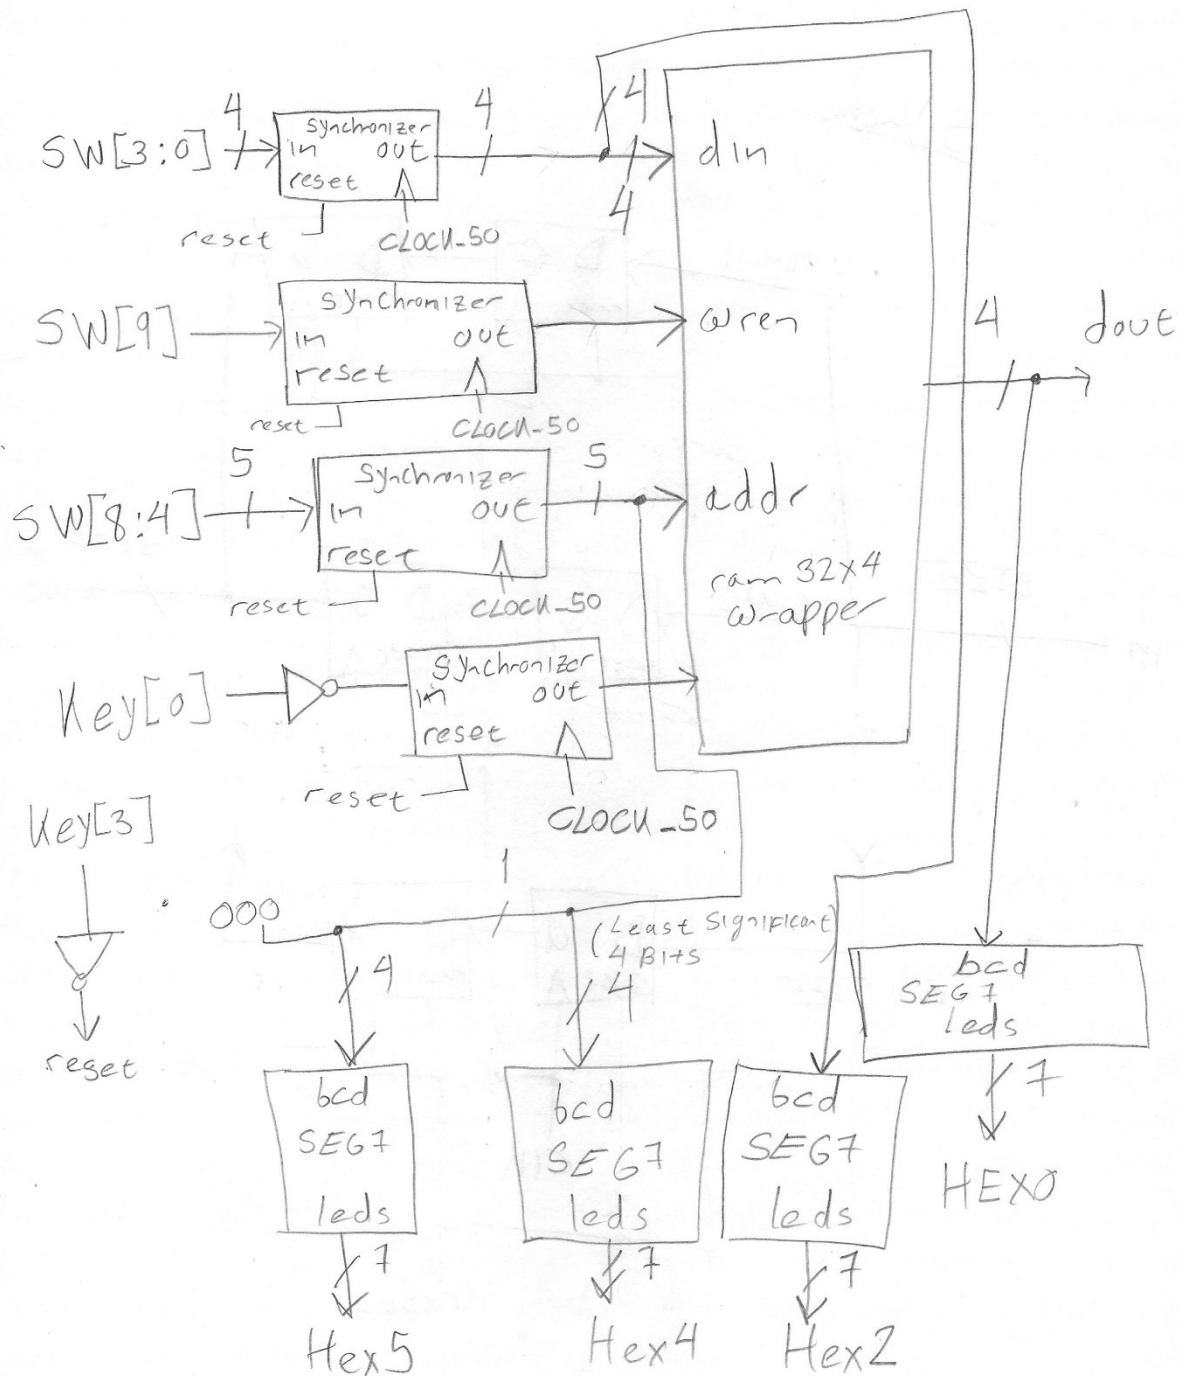 4
4
4
SW[3:0]
synchronizer
in out
reset
din
4
reset
CLOCK_50
SW[9]
synchronizer
in out
reset
wren
4
dout
reset
CLOCK_50
5
5
SW[8:4]
synchronizer
in out
reset
addr
reset
CLOCK_50
ram 32x4
wrapper
Key[0]
synchronizer
in out
reset
reset
CLOCK_50
Key[3]
1
000
(Least Significant)
4 Bits
4
4
reset
bcd
SEG7
leds
7
HEX0
bcd
SEG7
leds
7
Hex5
bcd
SEG7
leds
7
Hex4
bcd
SEG7
leds
7
Hex2